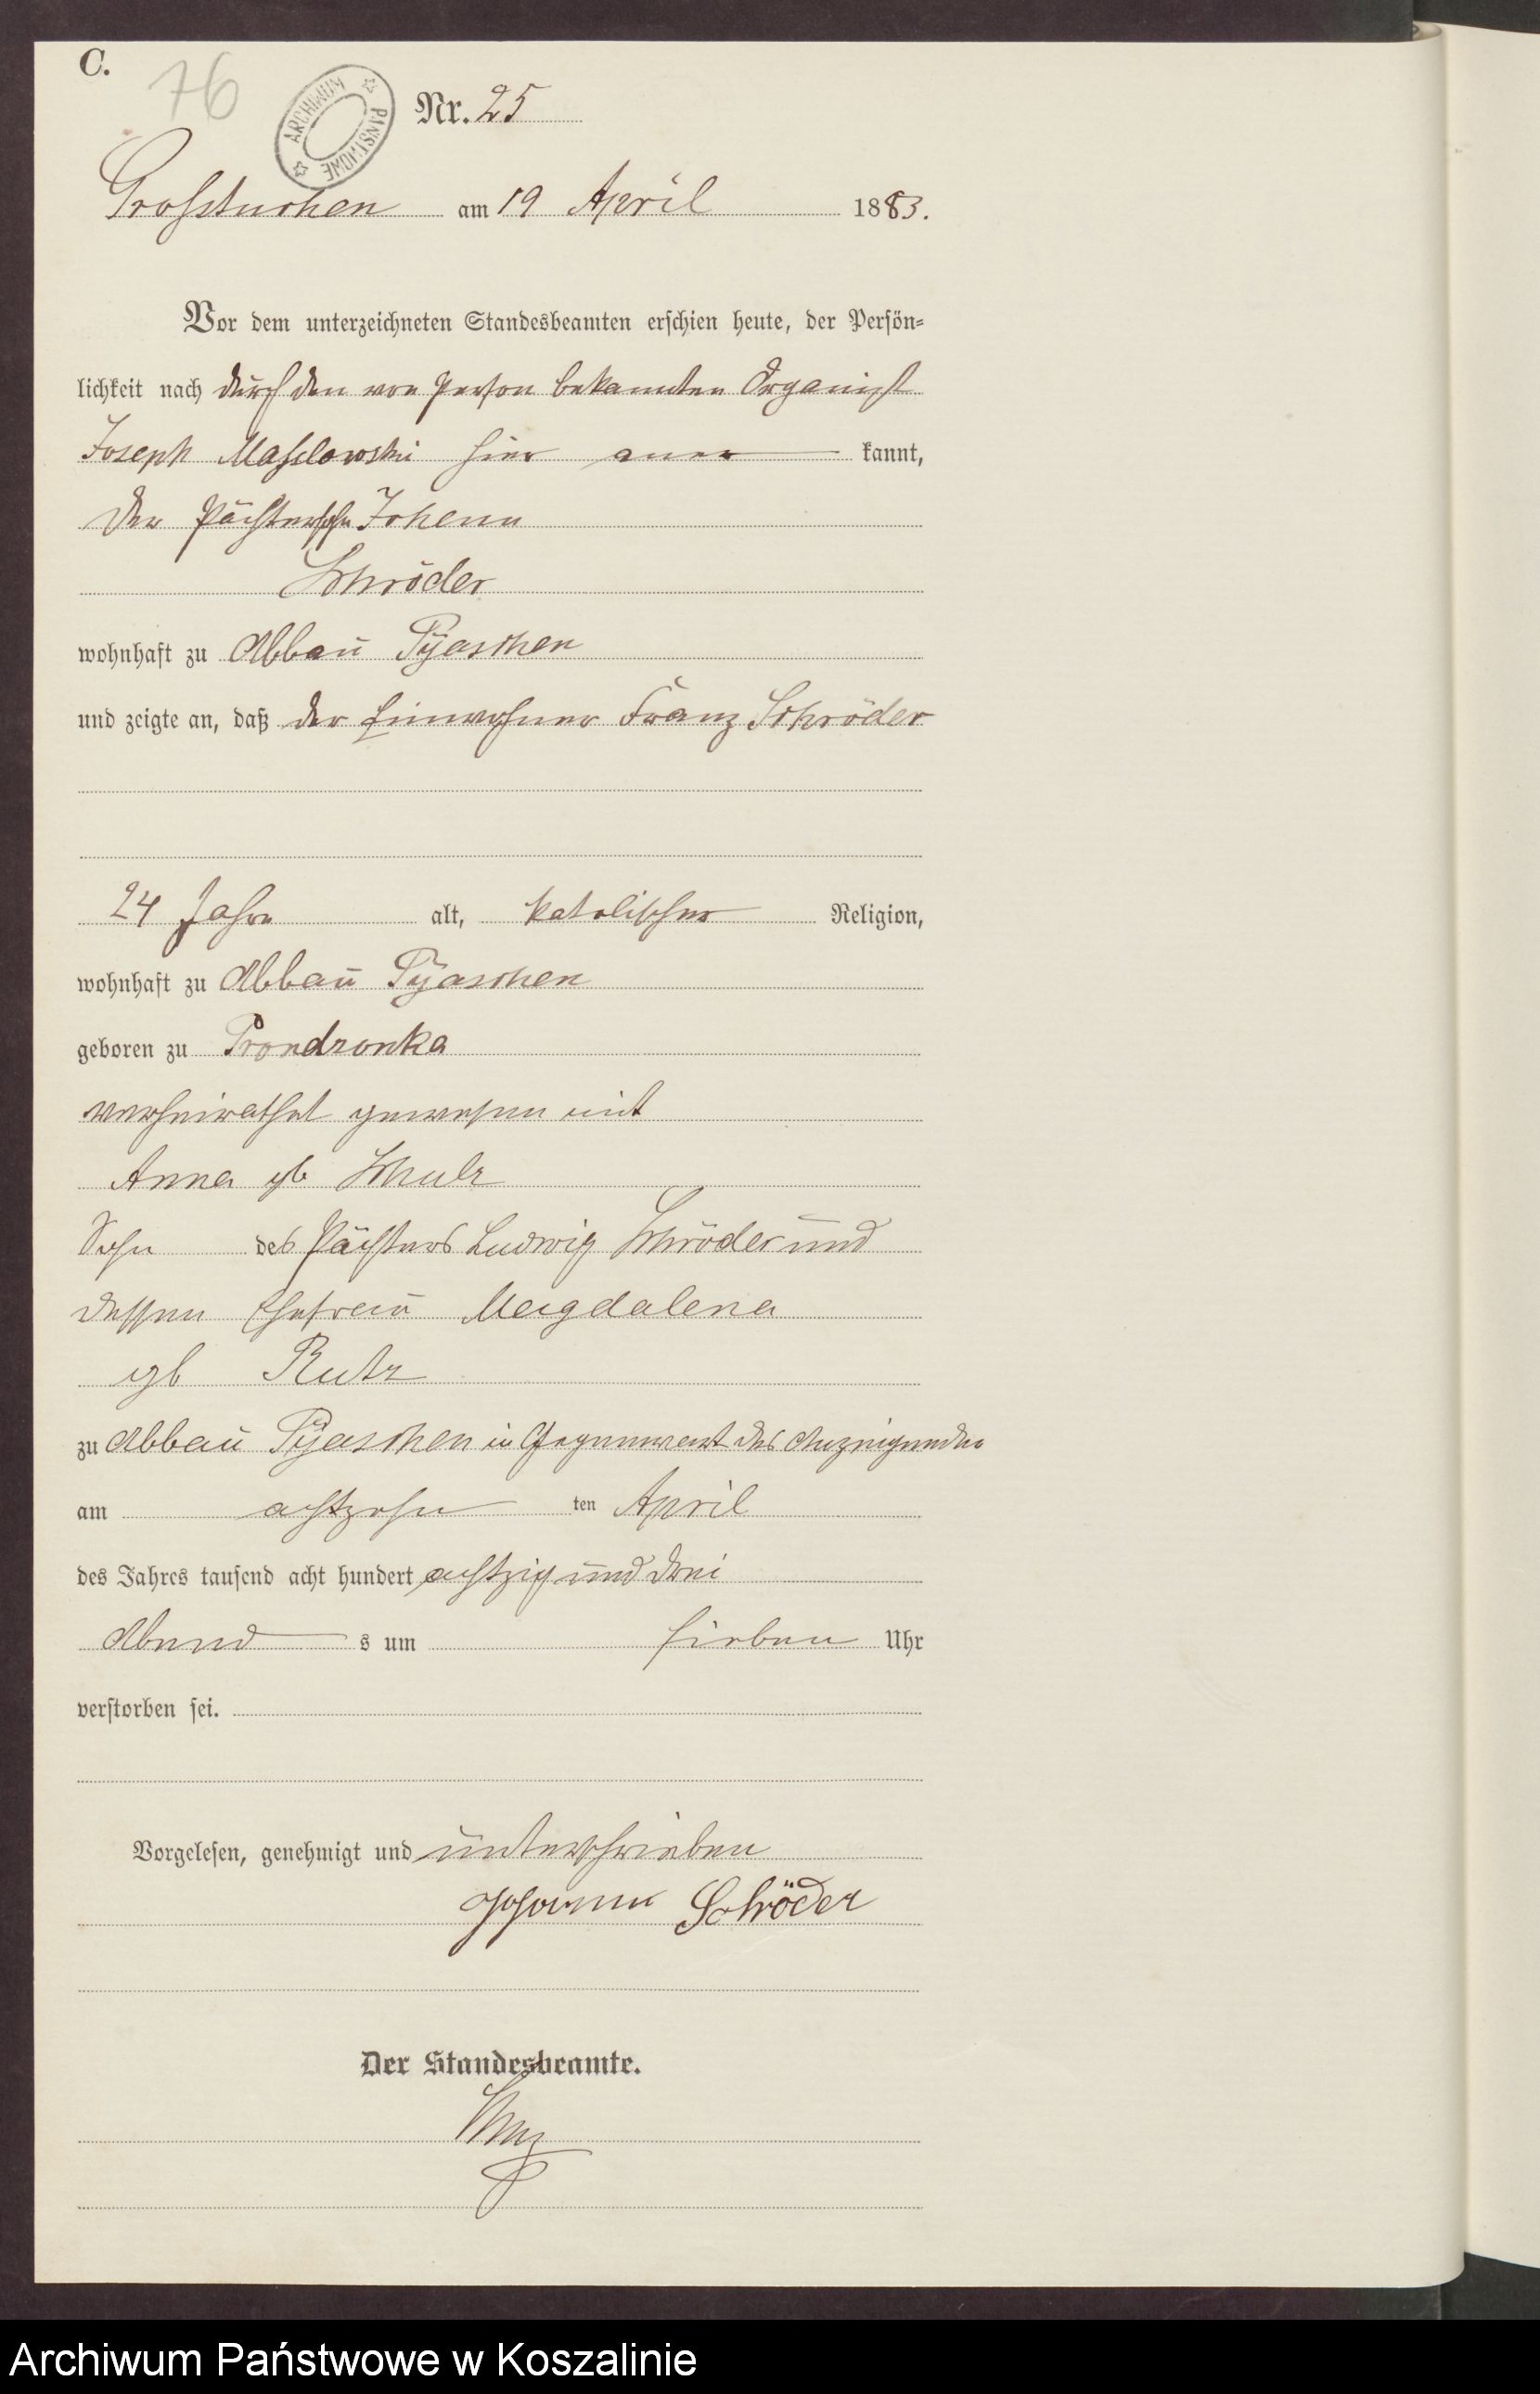 C.
76
ARCHIWUM PAŃSTWOWE
Nr. 25
Grosstuchen am 19 April 1883.
Vor dem unterzeichneten Standesbeamten erschien heute, der Persön-
lichkeit nach durch den von Person bekannten Organist
Joseph Masslowski hier aner kannt,
der Pächtersohn Johann
Schröder
wohnhaft zu Abbau Pyaschen
und zeigte an, daß der Einwohner Franz Schröder
24 Jahre alt, katolischer Religion,
wohnhaft zu Abbau Pyaschen
geboren zu Prondzonka
verheirathet gewesen mit
Anna gb Schulz
Sohn des Pächters Ludwig Schröder und
dessen Ehefrau Magdalena
gb Rutz
zu Abbau Pyaschen in Gegenwart des Anzeigenden
am achtzehn ten April
des Jahres tausend acht hundert achtzig und drei
Abend s um sieben Uhr
verstorben sei.
Vorgelesen, genehmigt und unterschrieben
Johann Schröder
Der Standesbeamte.
Archiwum Państwowe w Koszalinie